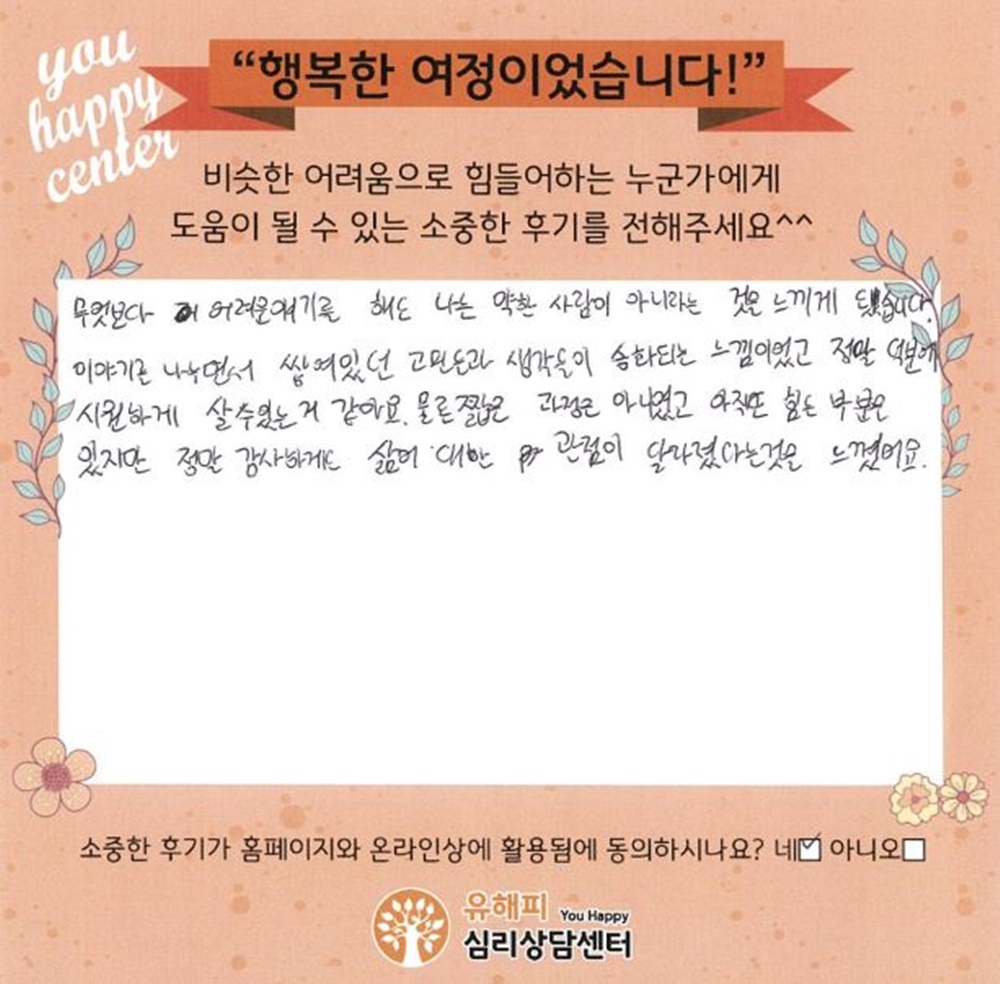 you
happy
center
“행복한 여정이었습니다!”
비슷한 어려움으로 힘들어하는 누군가에게
도움이 될 수 있는 소중한 후기를 전해주세요^^
무엇보다 어려운얘기를 해도 나는 약한 사람이 아니라는 것을 느끼게 되었습니다.
이야기를 나누면서 쌓여있던 고민들과 생각들이 승화되는 느낌이었고 정말 덕분에
시원하게 살수있는거 같아요. 물론 짧은 과정은 아니였고 아직또 힘든 부분은
있지만 정말 감사하게도 삶에 대한 관점이 달라졌다는것을 느꼈어요.
소중한 후기가 홈페이지와 온라인상에 활용됨에 동의하시나요? 네 아니오
유해피 You Happy
심리상담센터